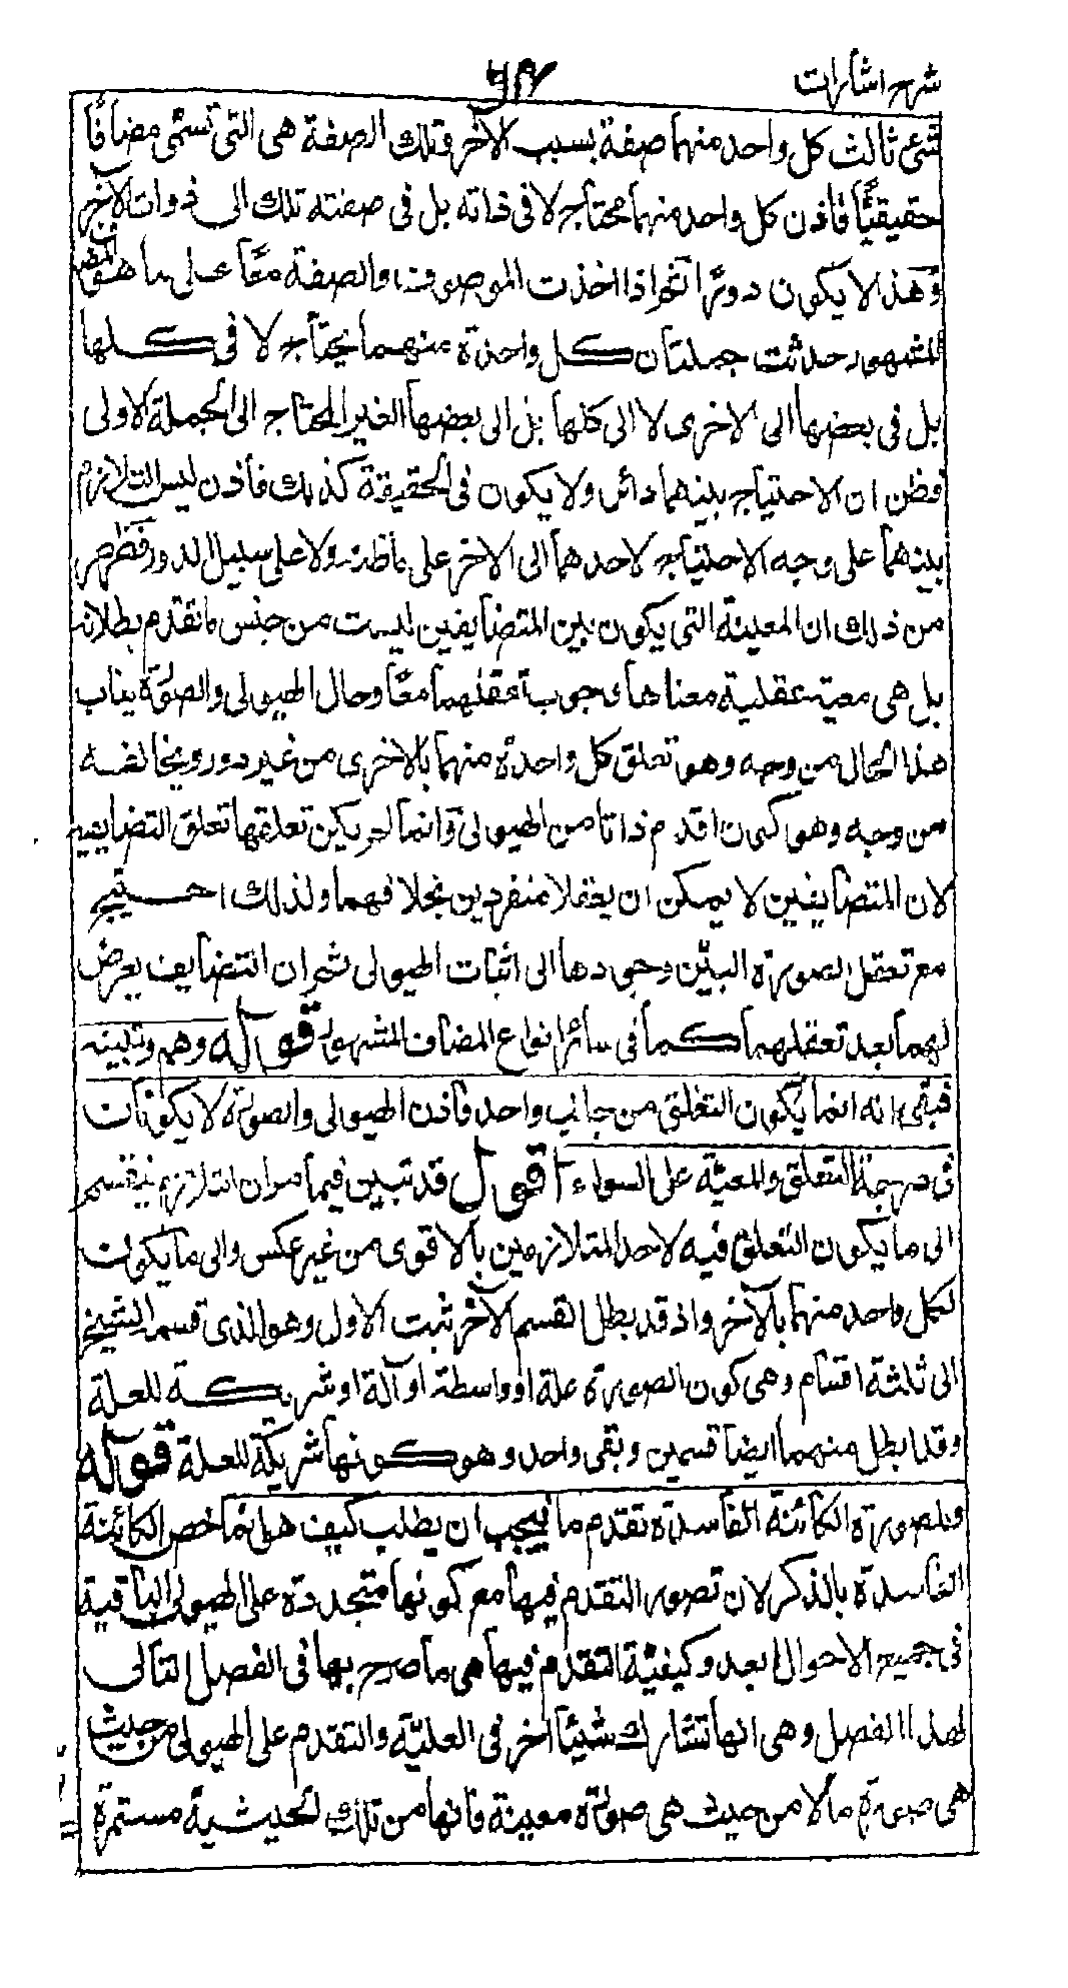 شرح اشارات
شىء ثالث كل واحد منهما صفة بسبب الآخر وتلك الصفة هى التى تسمى مضافًا
حقيقيًّا فاذن كل واحد منهما محتاج لا فى ذاته بل فى صفته تلك الى ذوات الآخر
وهذا لا يكون دورًا ثم اذا اخذت الموصوف والصفة معًا على ما هو المضاف
المشهور حدثت جملتان كل واحدة منهما يحتاج لا فى كلها
بل فى بعضها الى الاخرى لا الى كلها بل الى بعضها الغير المحتاج الى الجملة الاولى
فظن ان الاحتياج بينهما دائر ولا يكون فى الحقيقة كذلك فاذن ليس التلازم
بينهما على وجه الاحتياج لاحدهما الى الاخر على ما ظنه ولا على سبيل الدور فظهر
من ذلك ان المعية التى يكون بين المتضايفين ليست من جنس ما تقدم بطلانه
بل هى معية عقلية معناها وجوب تعقلهما معًا وحال الهيولى والصورة يناسب
هذا الحال من وجه وهو تعلق كل واحدة منهما بالاخرى من غير دور ويخالفه
من وجه وهو كون اقدم ذاتا من الهيولى وانما لم يكن تعلقها تعلق التضايف
لان المتضايفين لا يمكن ان يعقلا منفردين بخلافهما ولذلك احتيج
مع تعقل الصورة البيّن وجودها الى اثبات الهيولى ثم ان التضايف يعرض
لهما بعد تعقلهما كما فى سائر انواع المضاف المشهور قوله وهم وتنبيه
فبقى انه انما يكون التعلق من جانب واحد فاذن الهيولى والصورة لا يكونان
فى درجة التعلق والمعية على السواء اقول قد تبين فيما مر ان التلازم ينقسم
الى ما يكون التعلق فيه لاحد المتلازمين بالاقوى من غير عكس والى ما يكون
لكل واحد منهما بالآخر واذ قد بطل القسم الآخر ثبت الاول وهو الذى قسم الشيخ
الى ثلثة اقسام وهى كون الصورة علة او واسطة او آلة او شريكة للعلة
وقد ابطل منهما ايضا قسمين وبقى واحد وهو كونها شريكة للعلة قوله
وللصورة الكائنة الفاسدة تقدم ما فيجب ان يطلب كيف هو انما خص الكائنة
الفاسدة بالذكر لان تصور التقدم فيها مع كونها متجددة على الهيولى الباقية
فى جميع الاحوال ابعد وكيفية التقدم فيها هى ما صرح بها فى الفصل التالى
لهذا الفصل وهى انها تشارك شيئًا آخر فى العلية والتقدم على الهيولى من حيث
هى صورة ما لا من حيث هى صورة معينة فانها من تلك الحيثية مستمرة